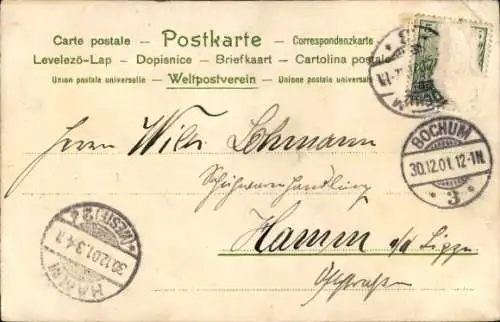 Carte postale — Postkarte — Correspondenzkarte
Levelező-Lap — Dopisnice — Briefkaart — Cartolina postale
Union postale universelle — Weltpostverein — Unione postale universale
BOCHUM
BOCHUM
30.12.01.12-1N.
* 3 *
Herrn Wilh. Lohmann
Schuhwarenhandlung
Hamm a/d Lippe
Oststraßen
HAMM
30.12.01.3-4N
(WESTF.) 2